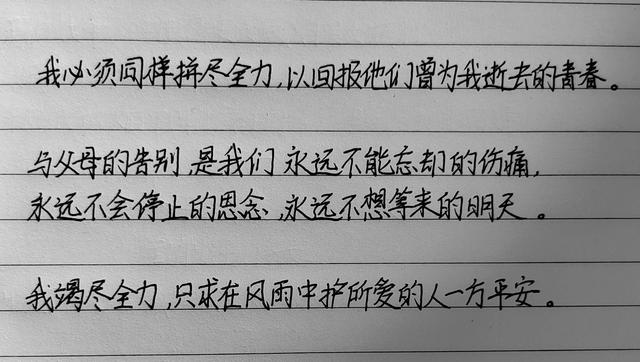 我必须同样拼尽全力,以回报他们曾为我逝去的青春。
与父母的告别,是我们永远不能忘却的伤痛,
永远不会停止的思念,永远不想等来的明天。
我竭尽全力,只求在风雨中护所爱的人一方平安。